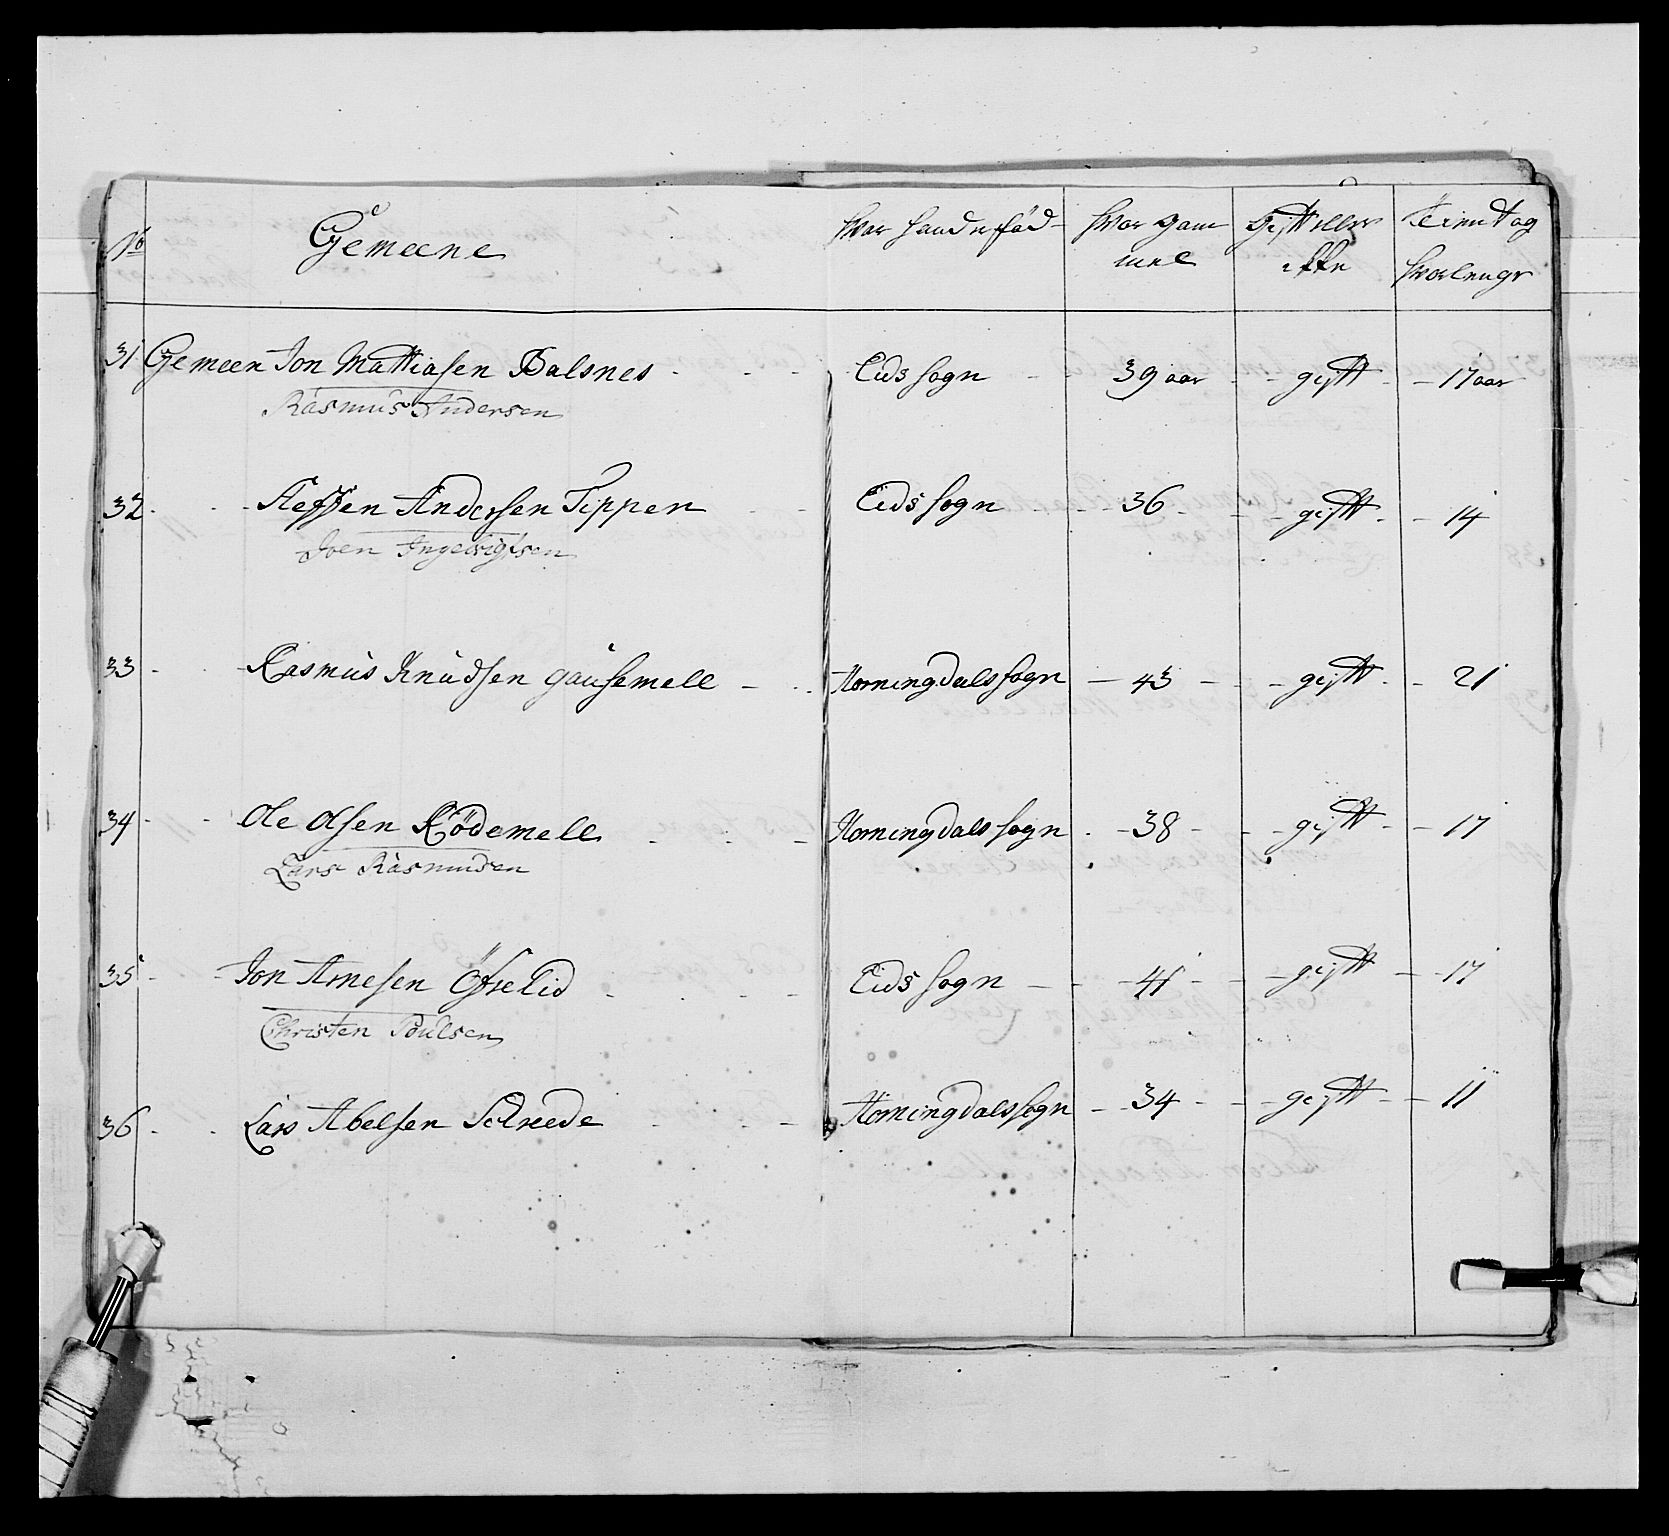 No Gemeene Hvor hand er fød Hvor gam Gift eller Tient og
mel ikke hvorlenge
31 Gemeen Jon Mattiasen Balsnes Eids sogn 39 aar gift 17 aar
Rasmus Andersen
32 Steffen Andersen Tippen Eids sogn 36 gift 14
Joen Ingebrigtsen
33 Rasmus Knudsen gausemell Horningdals sogn 43 gift 21
34 Ole Olsen Rödemell Horningdals sogn 38 gift 17
Lars Rasmusen
35 Jon Arnesen Öfrelid Eids sogn 41 gift 17
Christen Poulsen
36 Lars Abelsen Schreede Horningdals sogn 34 gift 11